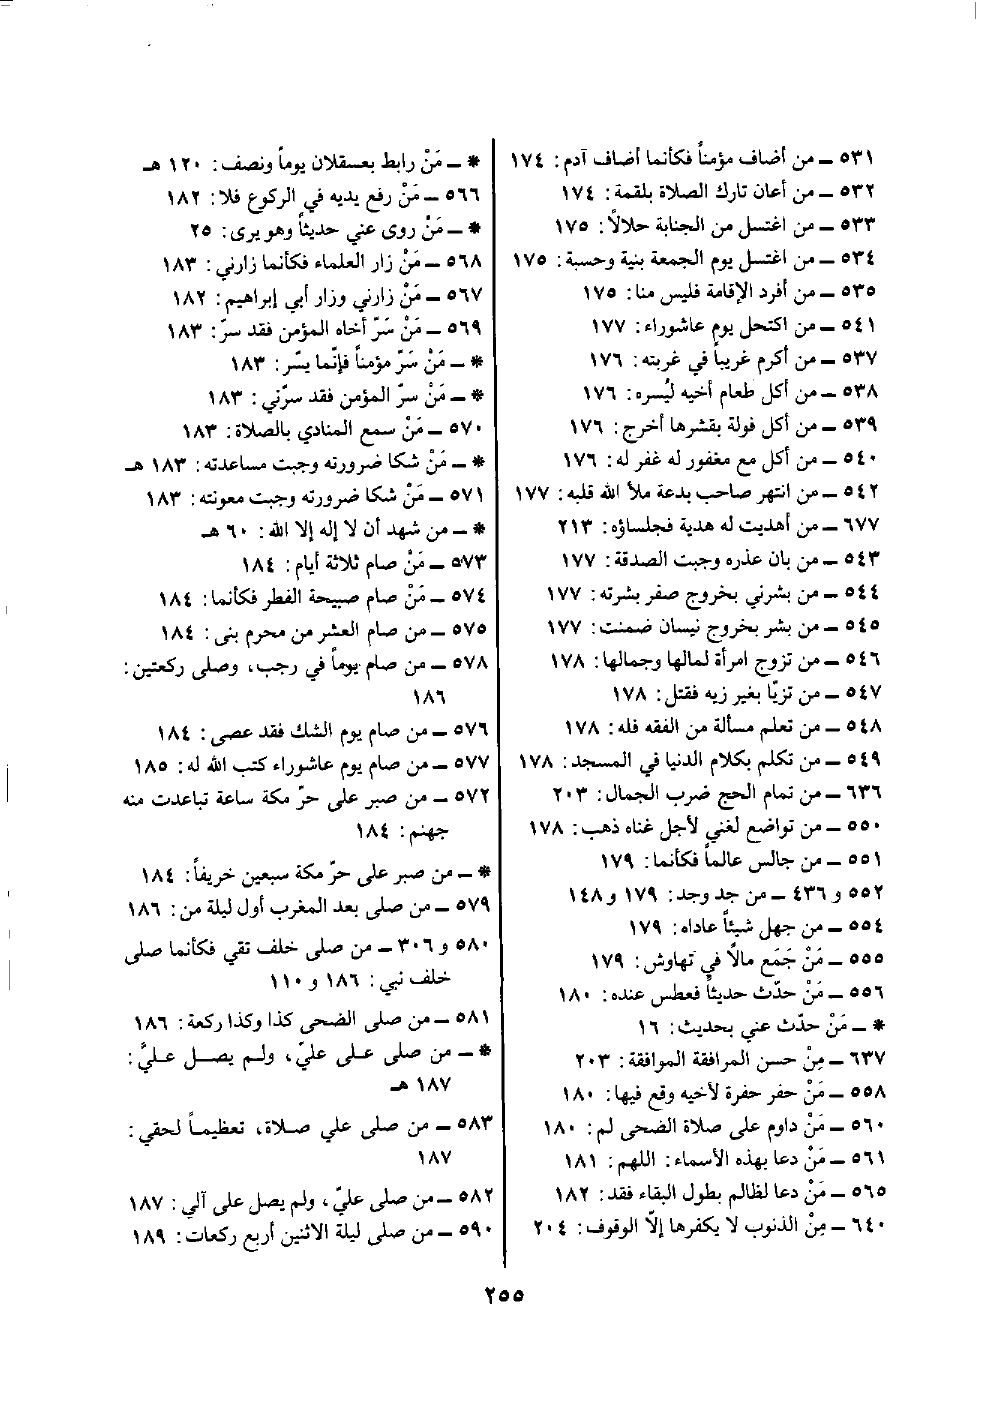 ٥٣١ ــ من أضاف مؤمناً فكأنما أضاف آدم: ١٧٤
٥٣٢ ــ من أعان تارك الصلاة بلقمة: ١٧٤
٥٣٣ ــ من اغتسل من الجنابة حلالاً: ١٧٥
٥٣٤ ــ من اغتسل يوم الجمعة بنية وحسبة: ١٧٥
٥٣٥ ــ من أفرد الإقامة فليس منا: ١٧٥
٥٤١ ــ من اكتحل يوم عاشوراء: ١٧٧
٥٣٧ ــ من أكرم غريباً في غربته: ١٧٦
٥٣٨ ــ من أكل طعام أخيه لُيسره: ١٧٦
٥٣٩ ــ من أكل فولة بقشرها أخرج: ١٧٦
٥٤٠ ــ من أكل مع مغفور له غفر له: ١٧٦
٥٤٢ ــ من انتهر صاحب بدعة ملأ الله قلبه: ١٧٧
٦٧٧ ــ من أهديت له هدية فجلساؤه: ٢١٣
٥٤٣ ــ من بان عذره وجبت الصدقة: ١٧٧
٥٤٤ ــ من بشرني بخروج صفر بشرته: ١٧٧
٥٤٥ ــ من بشر بخروج نيسان ضمنت: ١٧٧
٥٤٦ ــ من تزوج امرأة لمالها وجمالها: ١٧٨
٥٤٧ ــ من تزيّا بغير زيه فقتل: ١٧٨
٥٤٨ ــ من تعلم مسألة من الفقه فله: ١٧٨
٥٤٩ ــ من تكلم بكلام الدنيا في المسجد: ١٧٨
٦٣٦ ــ من تمام الحج ضرب الجمال: ٢٠٣
٥٥٠ ــ من تواضع لغني لأجل غناه ذهب: ١٧٨
٥٥١ ــ من جالس عالماً فكأنما: ١٧٩
٥٥٢ و ٤٣٦ ــ من جد وجد: ١٧٩ و ١٤٨
٥٥٤ ــ من جهل شيئاً عاداه: ١٧٩
٥٥٥ ــ مَنْ جَمَع مالًا في تهاوش: ١٧٩
٥٥٦ ــ مَنْ حدّث حديثاً فعطس عنده: ١٨٠
* ــ مَنْ حدّث عني بحديث: ١٦
٦٣٧ ــ مِنْ حسن المرافقة الموافقة: ٢٠٣
٥٥٨ ــ مَنْ حفر حفرة لأخيه وقع فيها: ١٨٠
٥٦٠ ــ مَنْ داوم على صلاة الضحى لم: ١٨٠
٥٦١ ــ مَنْ دعا بهذه الأسماء: اللهم: ١٨١
٥٦٥ ــ مَنْ دعا لظالم بطول البقاء فقد: ١٨٢
٦٤٠ ــ مِنْ الذنوب لا يكفرها إلّا الوقوف: ٢٠٤
* ــ مَنْ رابط بعسقلان يوماً ونصف: ١٢٠ هـ
٥٦٦ ــ مَنْ رفع يديه في الركوع فلا: ١٨٢
* ــ مَنْ روى عني حديثاً وهو يرى: ٢٥
٥٦٨ ــ مَنْ زار العلماء فكأنما زارني: ١٨٣
٥٦٧ ــ مَنْ زارني وزار أبي إبراهيم: ١٨٢
٥٦٩ ــ مَنْ سَرّ أخاه المؤمن فقد سرّ: ١٨٣
* ــ مَنْ سَرّ مؤمناً فإنّما يسّر: ١٨٣
* ــ مَنْ سرّ المؤمن فقد سرّني: ١٨٣
٥٧٠ ــ مَنْ سمع المنادي بالصلاة: ١٨٣
* ــ مَنْ شكا ضرورته وجبت مساعدته: ١٨٣ هـ
٥٧١ ــ مَنْ شكا ضرورته وجبت معونته: ١٨٣
* ــ من شهد أن لا إله إلا الله: ٦٠ هـ
٥٧٣ ــ مَنْ صام ثلاثة أيام: ١٨٤
٥٧٤ ــ مَنْ صام صبيحة الفطر فكأنما: ١٨٤
٥٧٥ ــ من صام العشر من محرم بنى: ١٨٤
٥٧٨ ــ من صام يوماً في رجب، وصلى ركعتين:
١٨٦
٥٧٦ ــ من صام يوم الشك فقد عصى: ١٨٤
٥٧٧ ــ من صام يوم عاشوراء كتب الله له: ١٨٥
٥٧٢ ــ من صبر على حرّ مكة ساعة تباعدت منه
جهنم: ١٨٤
* ــ من صبر على حرّ مكة سبعين خريفاً: ١٨٤
٥٧٩ ــ من صلى بعد المغرب أول ليلة من: ١٨٦
٥٨٠ و ٣٠٦ ــ من صلى خلف تقي فكأنما صلى
خلف نبي: ١٨٦ و ١١٠
٥٨١ ــ من صلى الضحى كذا وكذا ركعة: ١٨٦
* ــ من صلى على عليّ، ولم يصل عليَّ:
١٨٧ هـ
٥٨٣ ــ من صلى علي صلاة، تعظيماً لحقي:
١٨٧
٥٨٢ ــ من صلى عليّ، ولم يصل على آلي: ١٨٧
٥٩٠ ــ من صلى ليلة الاثنين أربع ركعات: ١٨٩
٢٥٥